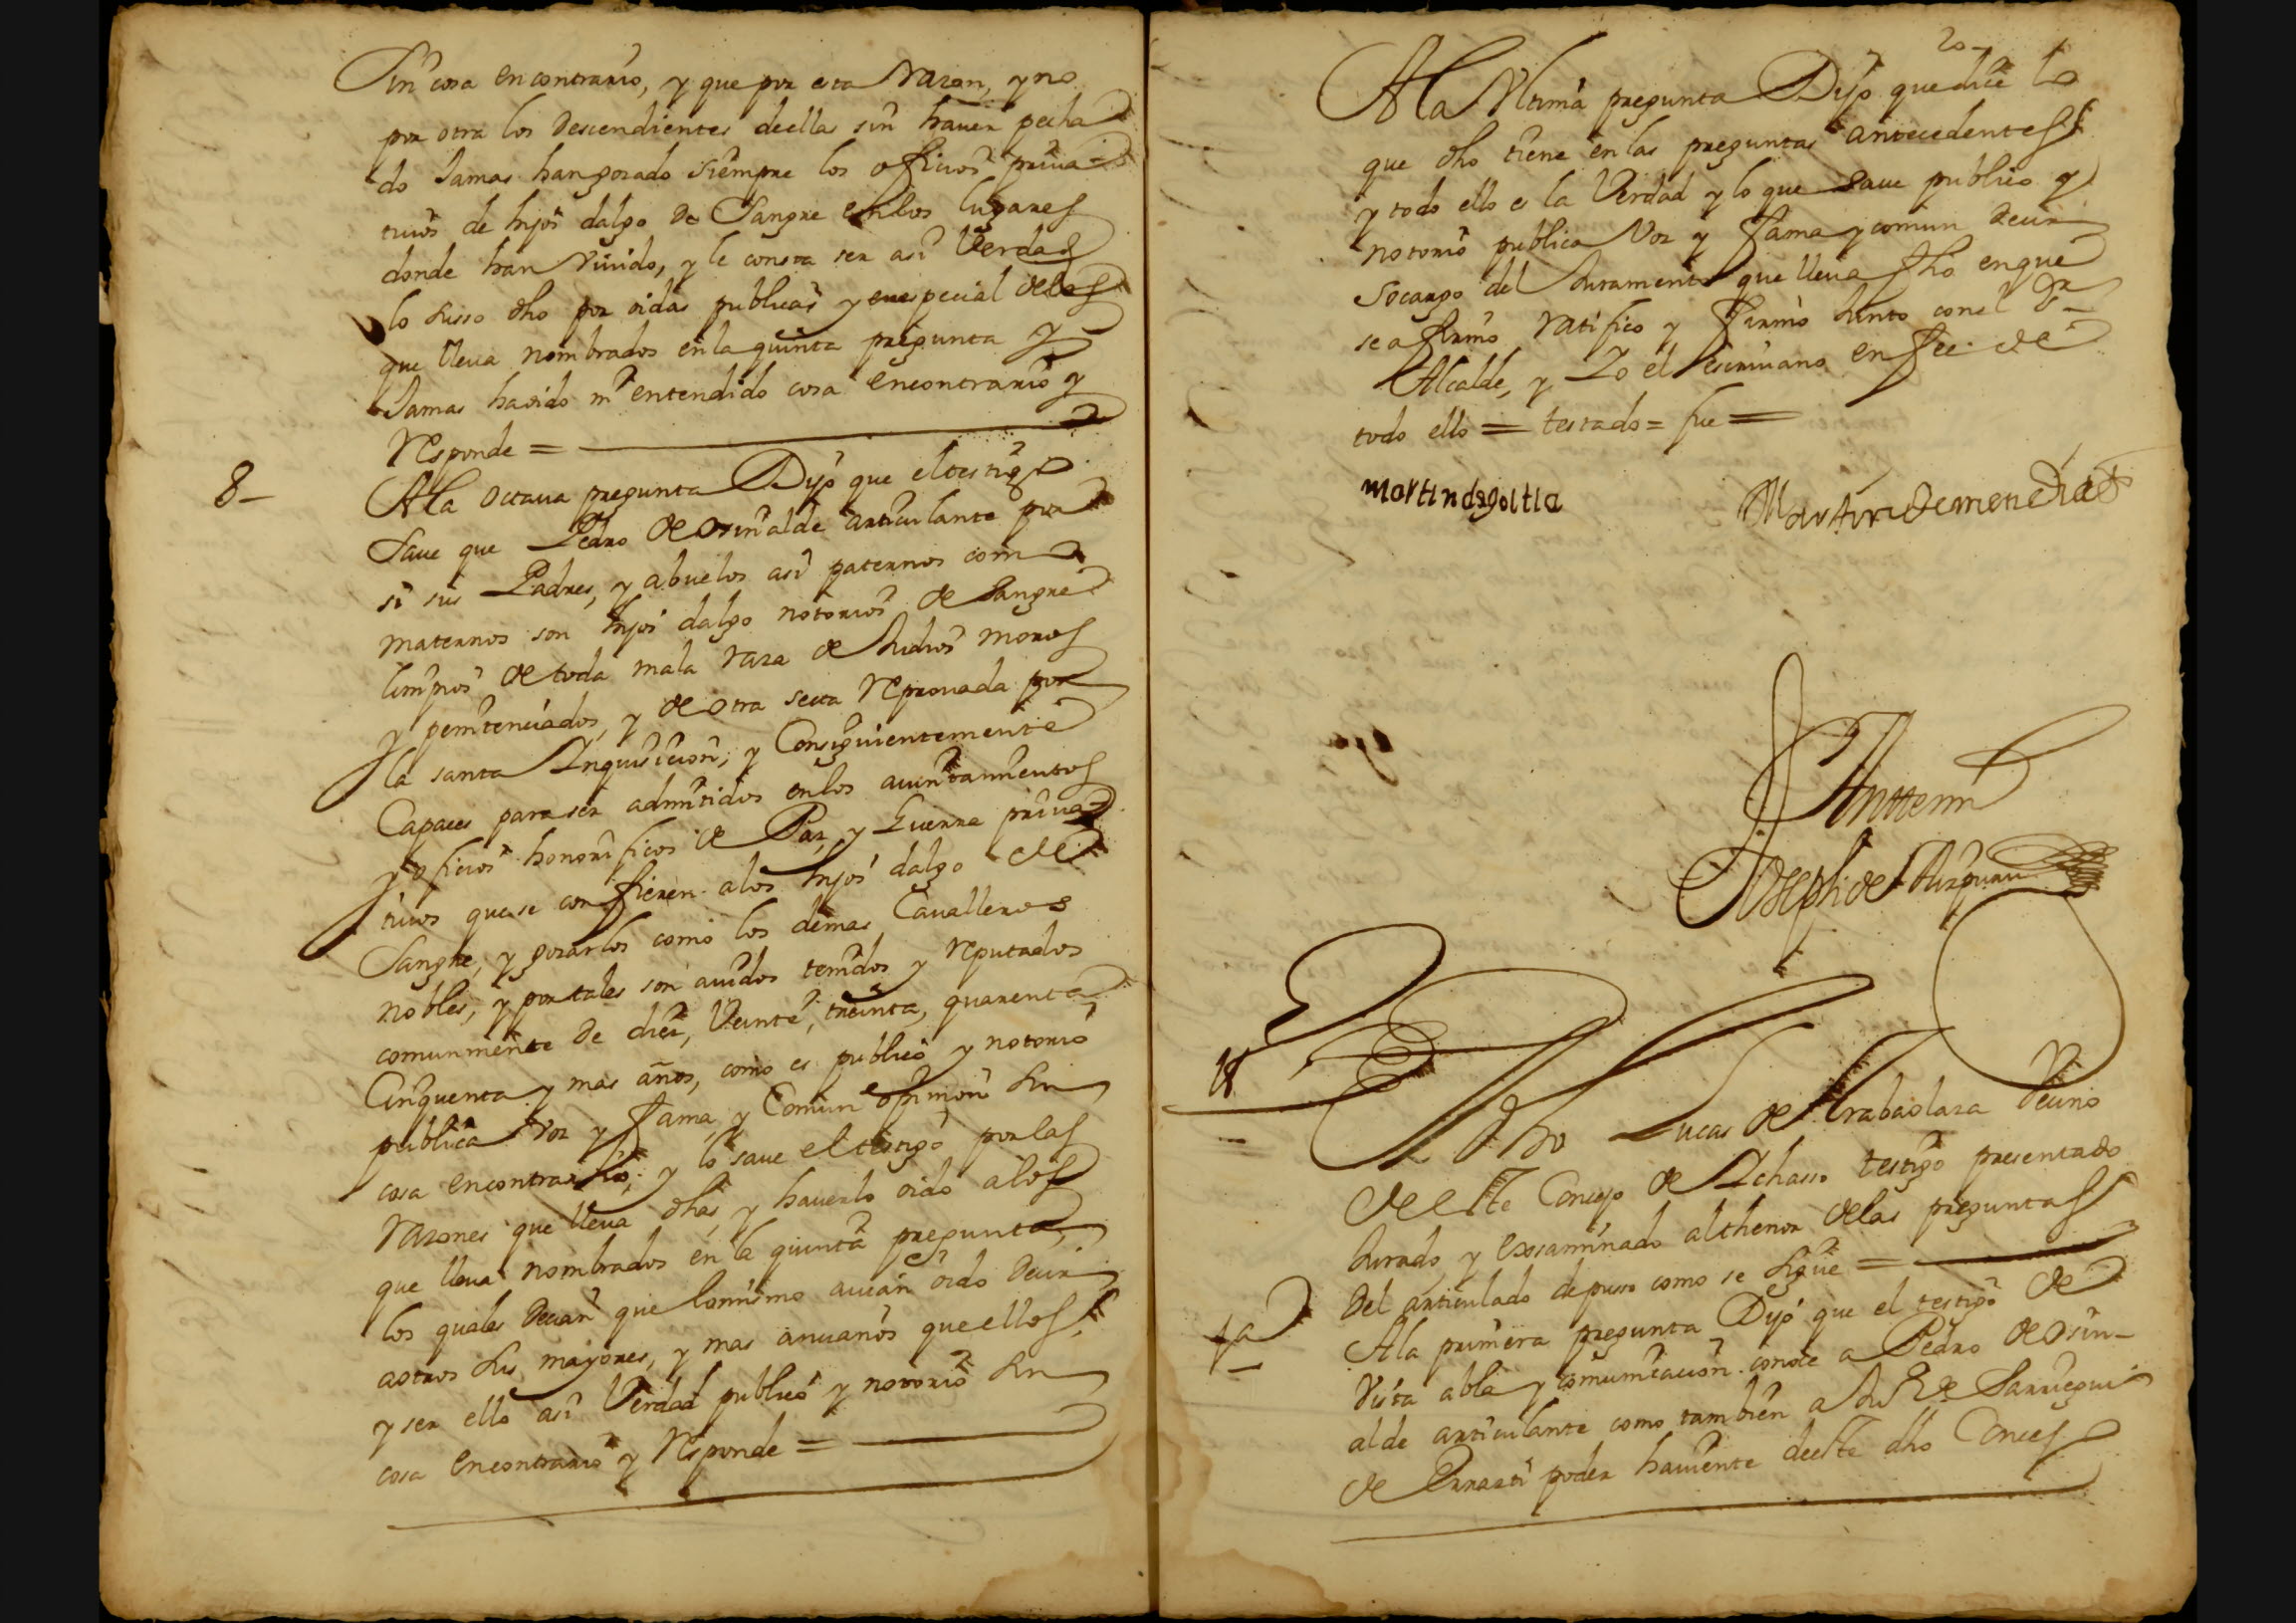 Sin cosa encontrario, y que por esta razon, y no
por otra los descendientes de ella sin hauer pecha
do Jamas han gozado siempre los oficios priua=
tiuos de hijos dalgo de Sangre en los lugares
donde han viuido, y le consta ser asi Verdad
lo susso dho por oidas publicas y enespecial delos
que lleua nombrados en la quinta pregunta y
Jamas ha oido ni entendido cosa encontrario y
responde =
8-
A la octaua pregunta Dijo que el testigo
saue que Pedro de Osinalde articulante por
si sus Padres, y abuelos asi paternos como
maternos son hijos dalgo notorios de Sangre
limpios de toda mala raza de Judios moros
y penitenciados, y de otra secta reprouada por
la santa Inquisicion, y Consiguientemente
Capaces para ser admitidos en los aiuntamientos
y oficios honorificos de Paz y Guerra priua=
tiuos que se confieren a los hijos dalgo de
Sangre, y gozarlos como los demas Caualleros
nobles, y por tales son auidos tenidos y reputados
comunmente de diez, Veinte, treinta, quarenta
Cinquenta y mas años, como es publico y notorio
publica voz y fama, y Comun opinion sin
cosa encontrario, y lo saue el testigo por las
razones que lleua dhas, y hauerlo oido a los
que lleua nombrados en la quinta pregunta,
los quales decian que lo mismo auian oido decir
a otros sus mayores, y mas ancianos que ellos,
y ser ello asi Verdad publico y notorio sin
cosa encontrario y responde =
20-
A la Vltima pregunta Dijo que dice lo
que dho tiene en las preguntas antecedentes
y todo ello es la Verdad y lo que saue publico y
notorio publica Voz y fama y comun decir
socargo del Juramento que lleua fho en que
se afirmo ratifico y firmo Junto con el Sr
Alcalde, y Yo el escriuano en fee de
todo ello = testado = fue =
martin de goitia
Martin de mendia
Ante mi
Joseph de Aizpuru
Dho Lucas de Arabaolaza Vecino
de este Concejo de Ychasso testigo presentado
Jurado y exsaminado althenor delas preguntas
del articulado depuso como se sigue =
1a
A la primera pregunta Dijo que el testigo de
vista abla y comunicacion conoce a Pedro de Osin-
alde articulante como tambien a Ju de Sarriegui
de Ernarti poder hauiente deeste dho Concejo